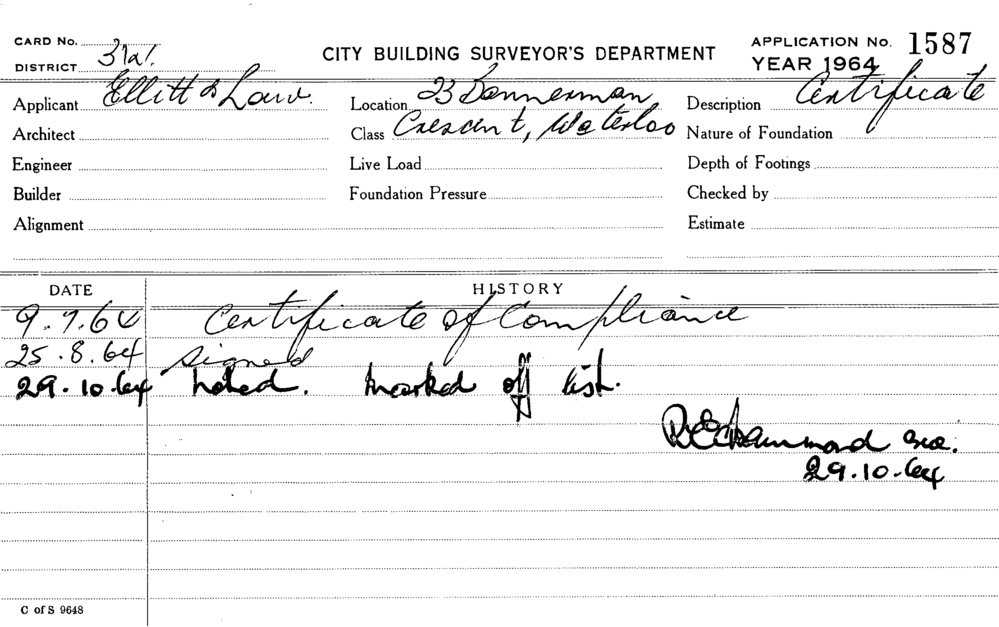 CARD No. CITY BUILDING SURVEYOR'S DEPARTMENT APPLICATION No. 1587
DISTRICT YEAR 1964
Applicant Ellitt & Location 23 Bannerman Description Certificate
Architect Class Crescent, Waterloo Nature of Foundation
Engineer Live Load Depth of Footings
Builder Foundation Pressure Checked by
Alignment Estimate
DATE HISTORY
9.7.64 Certificate of Compliance
25.8.64 signed
29.10.64 noted. Marked off list.
29.10.64
C of S 9648